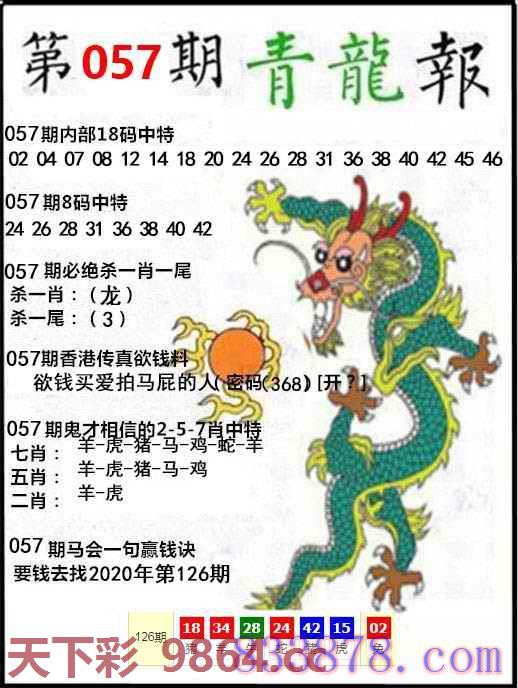 第057期青龍報
057期内部18码中特
02 04 07 08 12 14 18 20 24 26 28 31 36 38 40 42 45 46
057期8码中特
24 26 28 31 36 38 40 42
057期必绝杀一肖一尾
杀一肖：(龙)
杀一尾：(3)
057期香港传真欲钱料
欲钱买爱拍马屁的人(密码(368)[开？]
057期鬼才相信的2-5-7肖中特
七肖：羊-虎-猪-马-鸡-蛇-羊
五肖：羊-虎-猪-马-鸡
二肖：羊-虎
057期马会一句赢钱诀
要钱去找2020年第126期
126期 18 34 28 24 42 15 02
猪 羊 牛 蛇 猪 虎 兔
天下彩 9864.cc